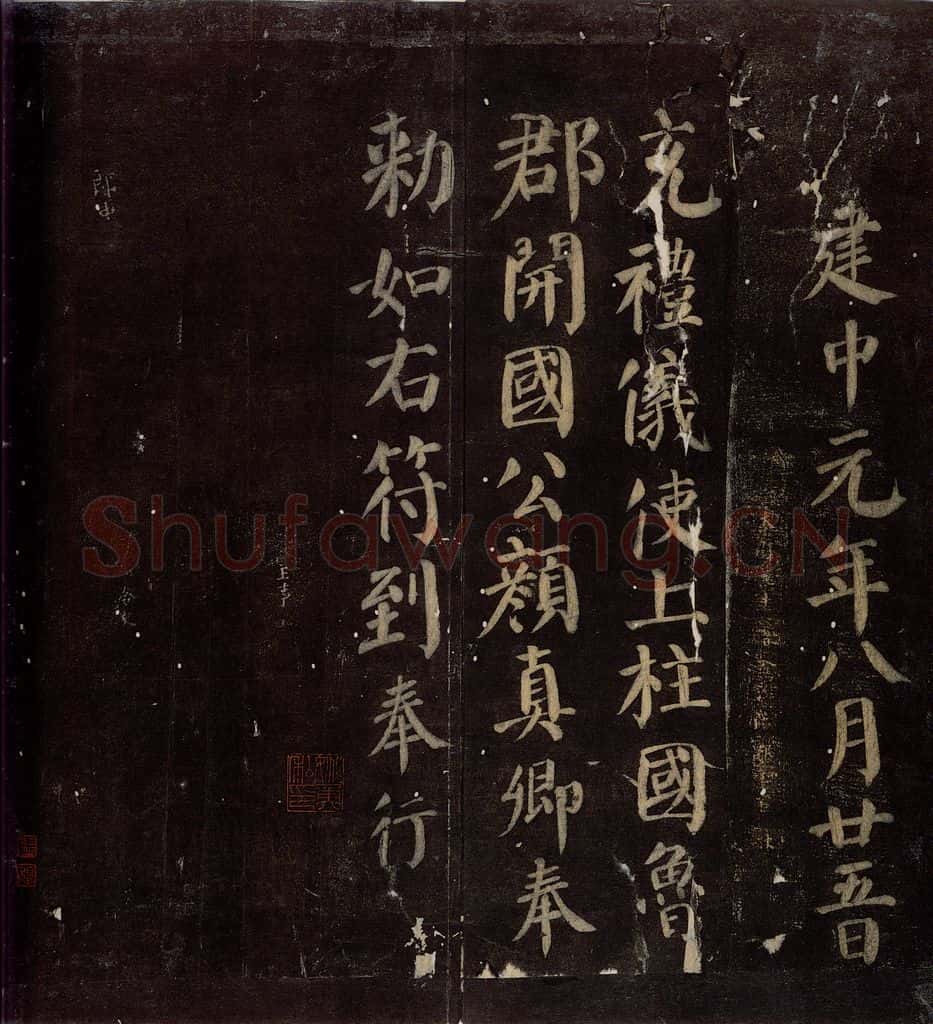 建中元年八月廿五日
充禮儀使上柱國魯
郡開國公顏真卿奉
勑如右符到奉行
郎中
Shufawang.CN